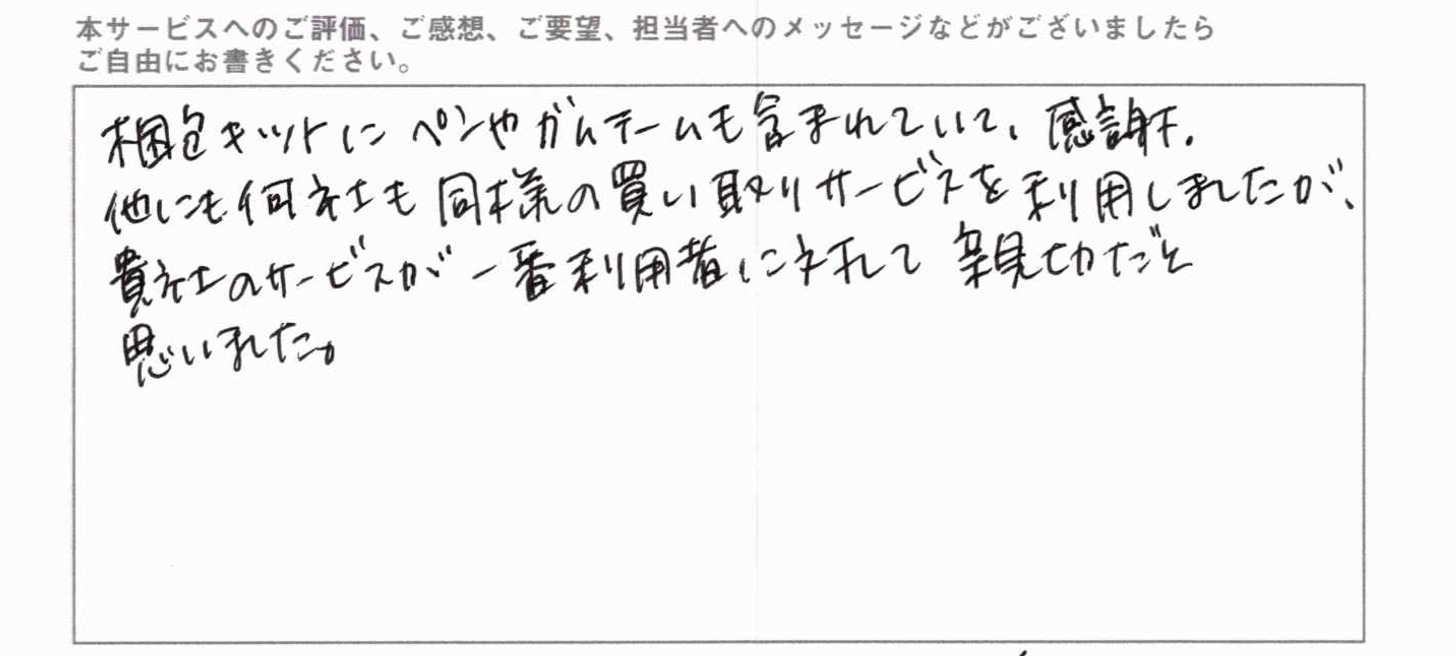 本サービスへのご評価、ご感想、ご要望、担当者へのメッセージなどがございましたら
ご自由にお書きください。
梱包キットにペンやガムテームも含まれていて、感謝。
他にも何社も同様の買い取りサービスを利用しましたが、
貴社のサービスが一番利用者に対して親切だと
思いました。